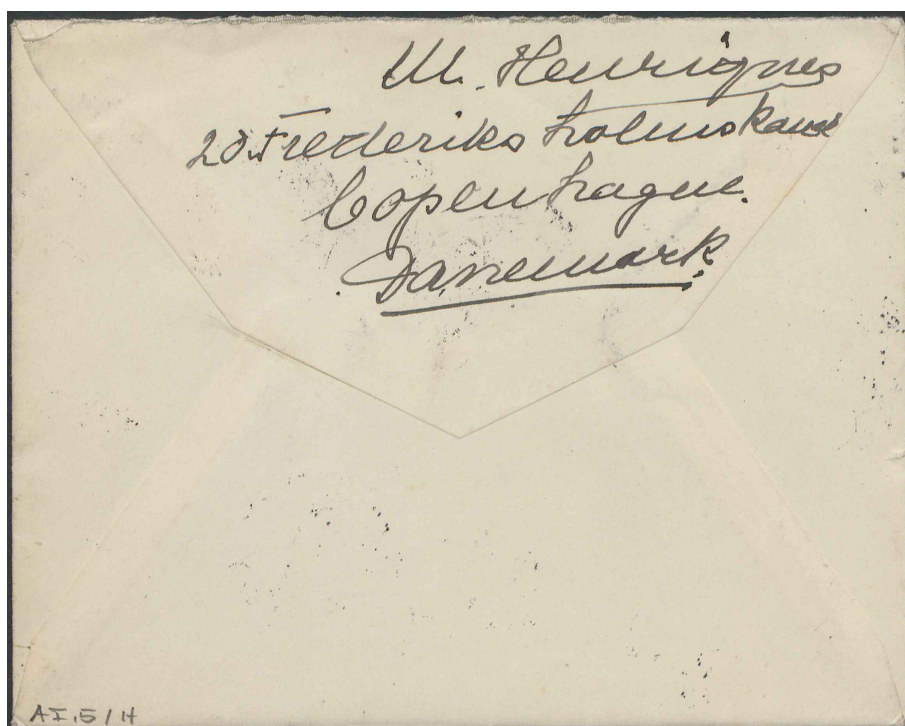 M. Henriques
20. Frederiksholmskanal
Copenhague.
Danemark.
AI.5/H